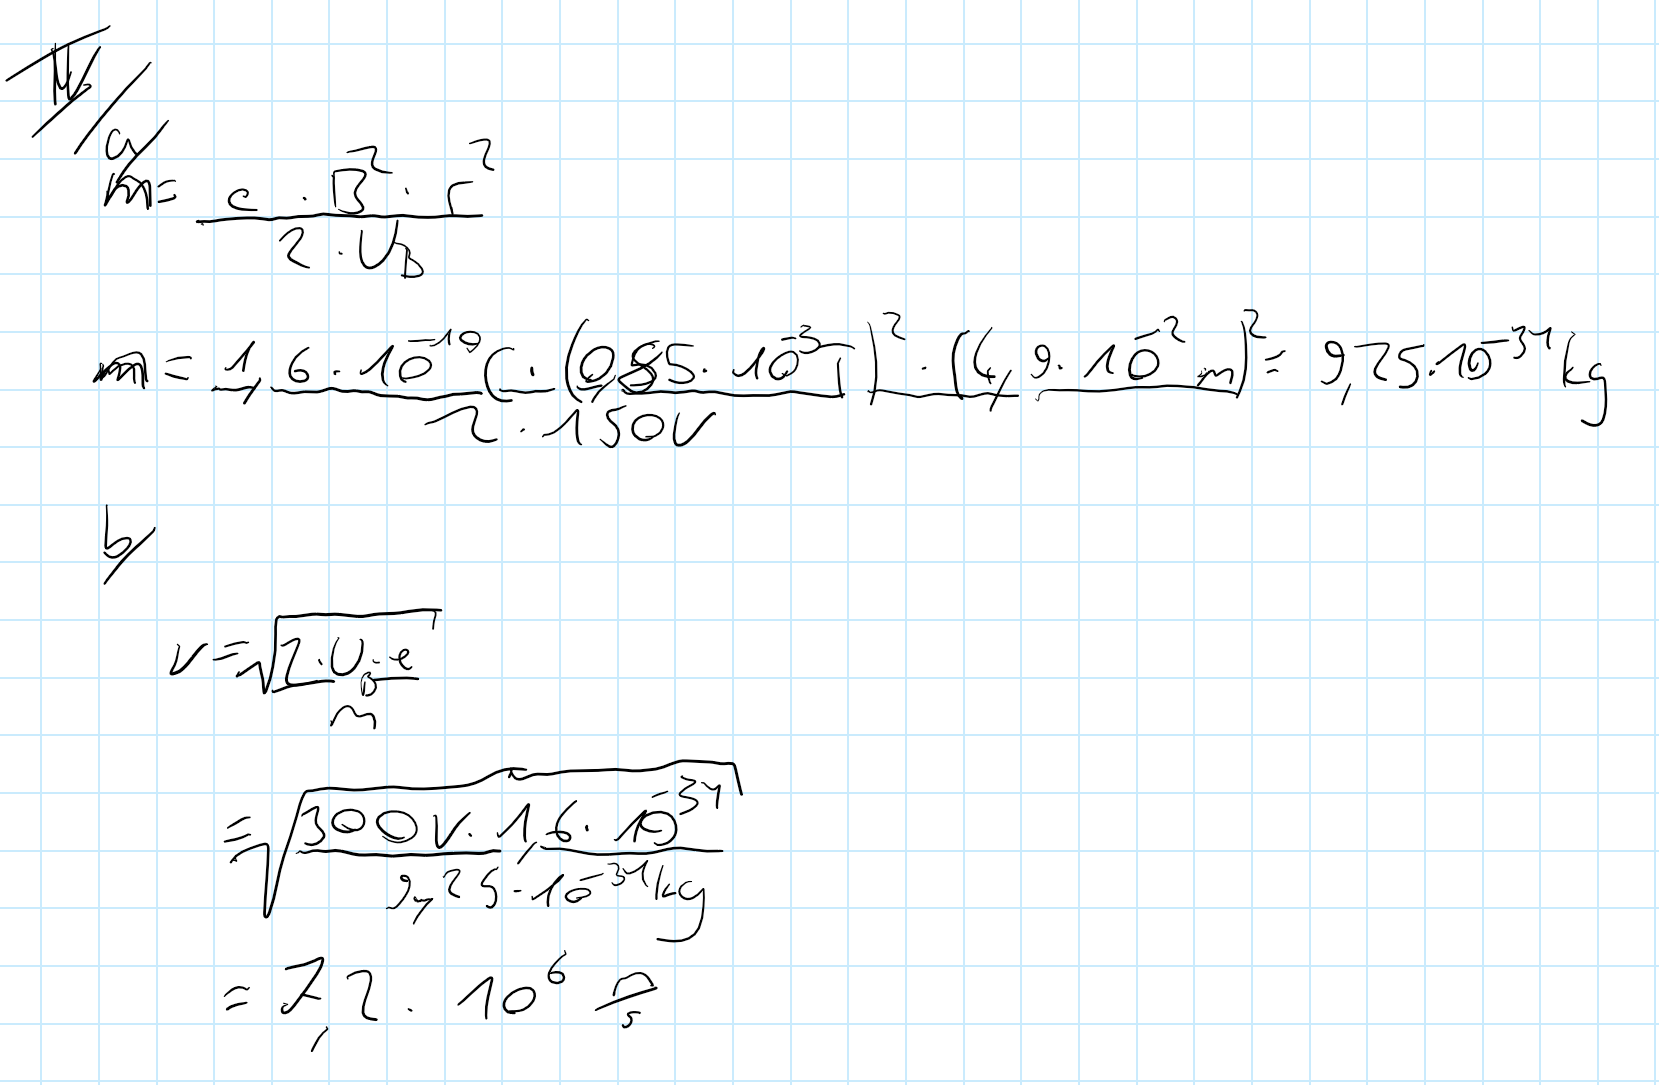 IV/
a/
m = e · B² · r² / 2 · U_B
m = 1,6 · 10⁻¹⁹ C · (0,85 · 10⁻³ T)² · (4,9 · 10⁻² m)² / 2 · 150V = 9,25 · 10⁻³¹ kg
b/
v = √(2 · U_B · e / m)
= √(300V · 1,6 · 10⁻³¹ / 9,25 · 10⁻³¹ kg)
= 7,2 · 10⁶ m/s